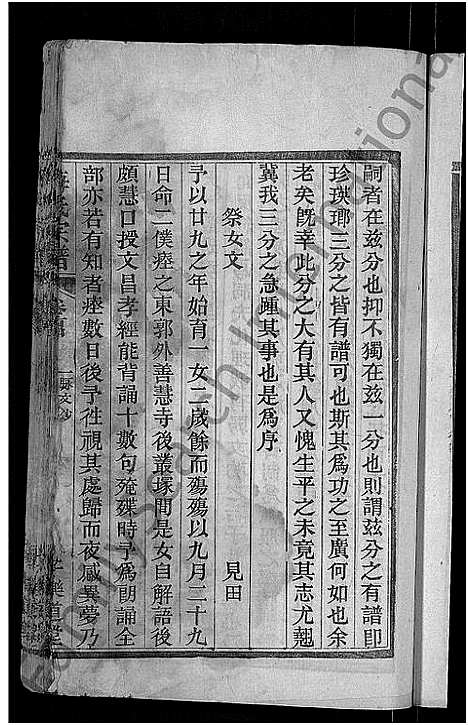 嗣者在玆分也抑不獨在玆一分也則謂玆分之有譜卽
珍瑛瑯三分之皆有譜可也斯其爲功之至廣何如也余
老矣旣幸此分之大有其人又愧生平之未竟其志尤翹
冀我三分之急踵其事也是爲序
祭女文 見田
予以廿九之年始育一女二歲餘而殤殤以九月二十九
日命二僕瘞之東郭外善慧寺後叢塚間是女自解語後
頗慧口授文昌孝經能背誦十數句殗殜時予爲朗誦全
部亦若有知者瘞數日後予徃視其處歸而夜感異夢乃
氏宗譜